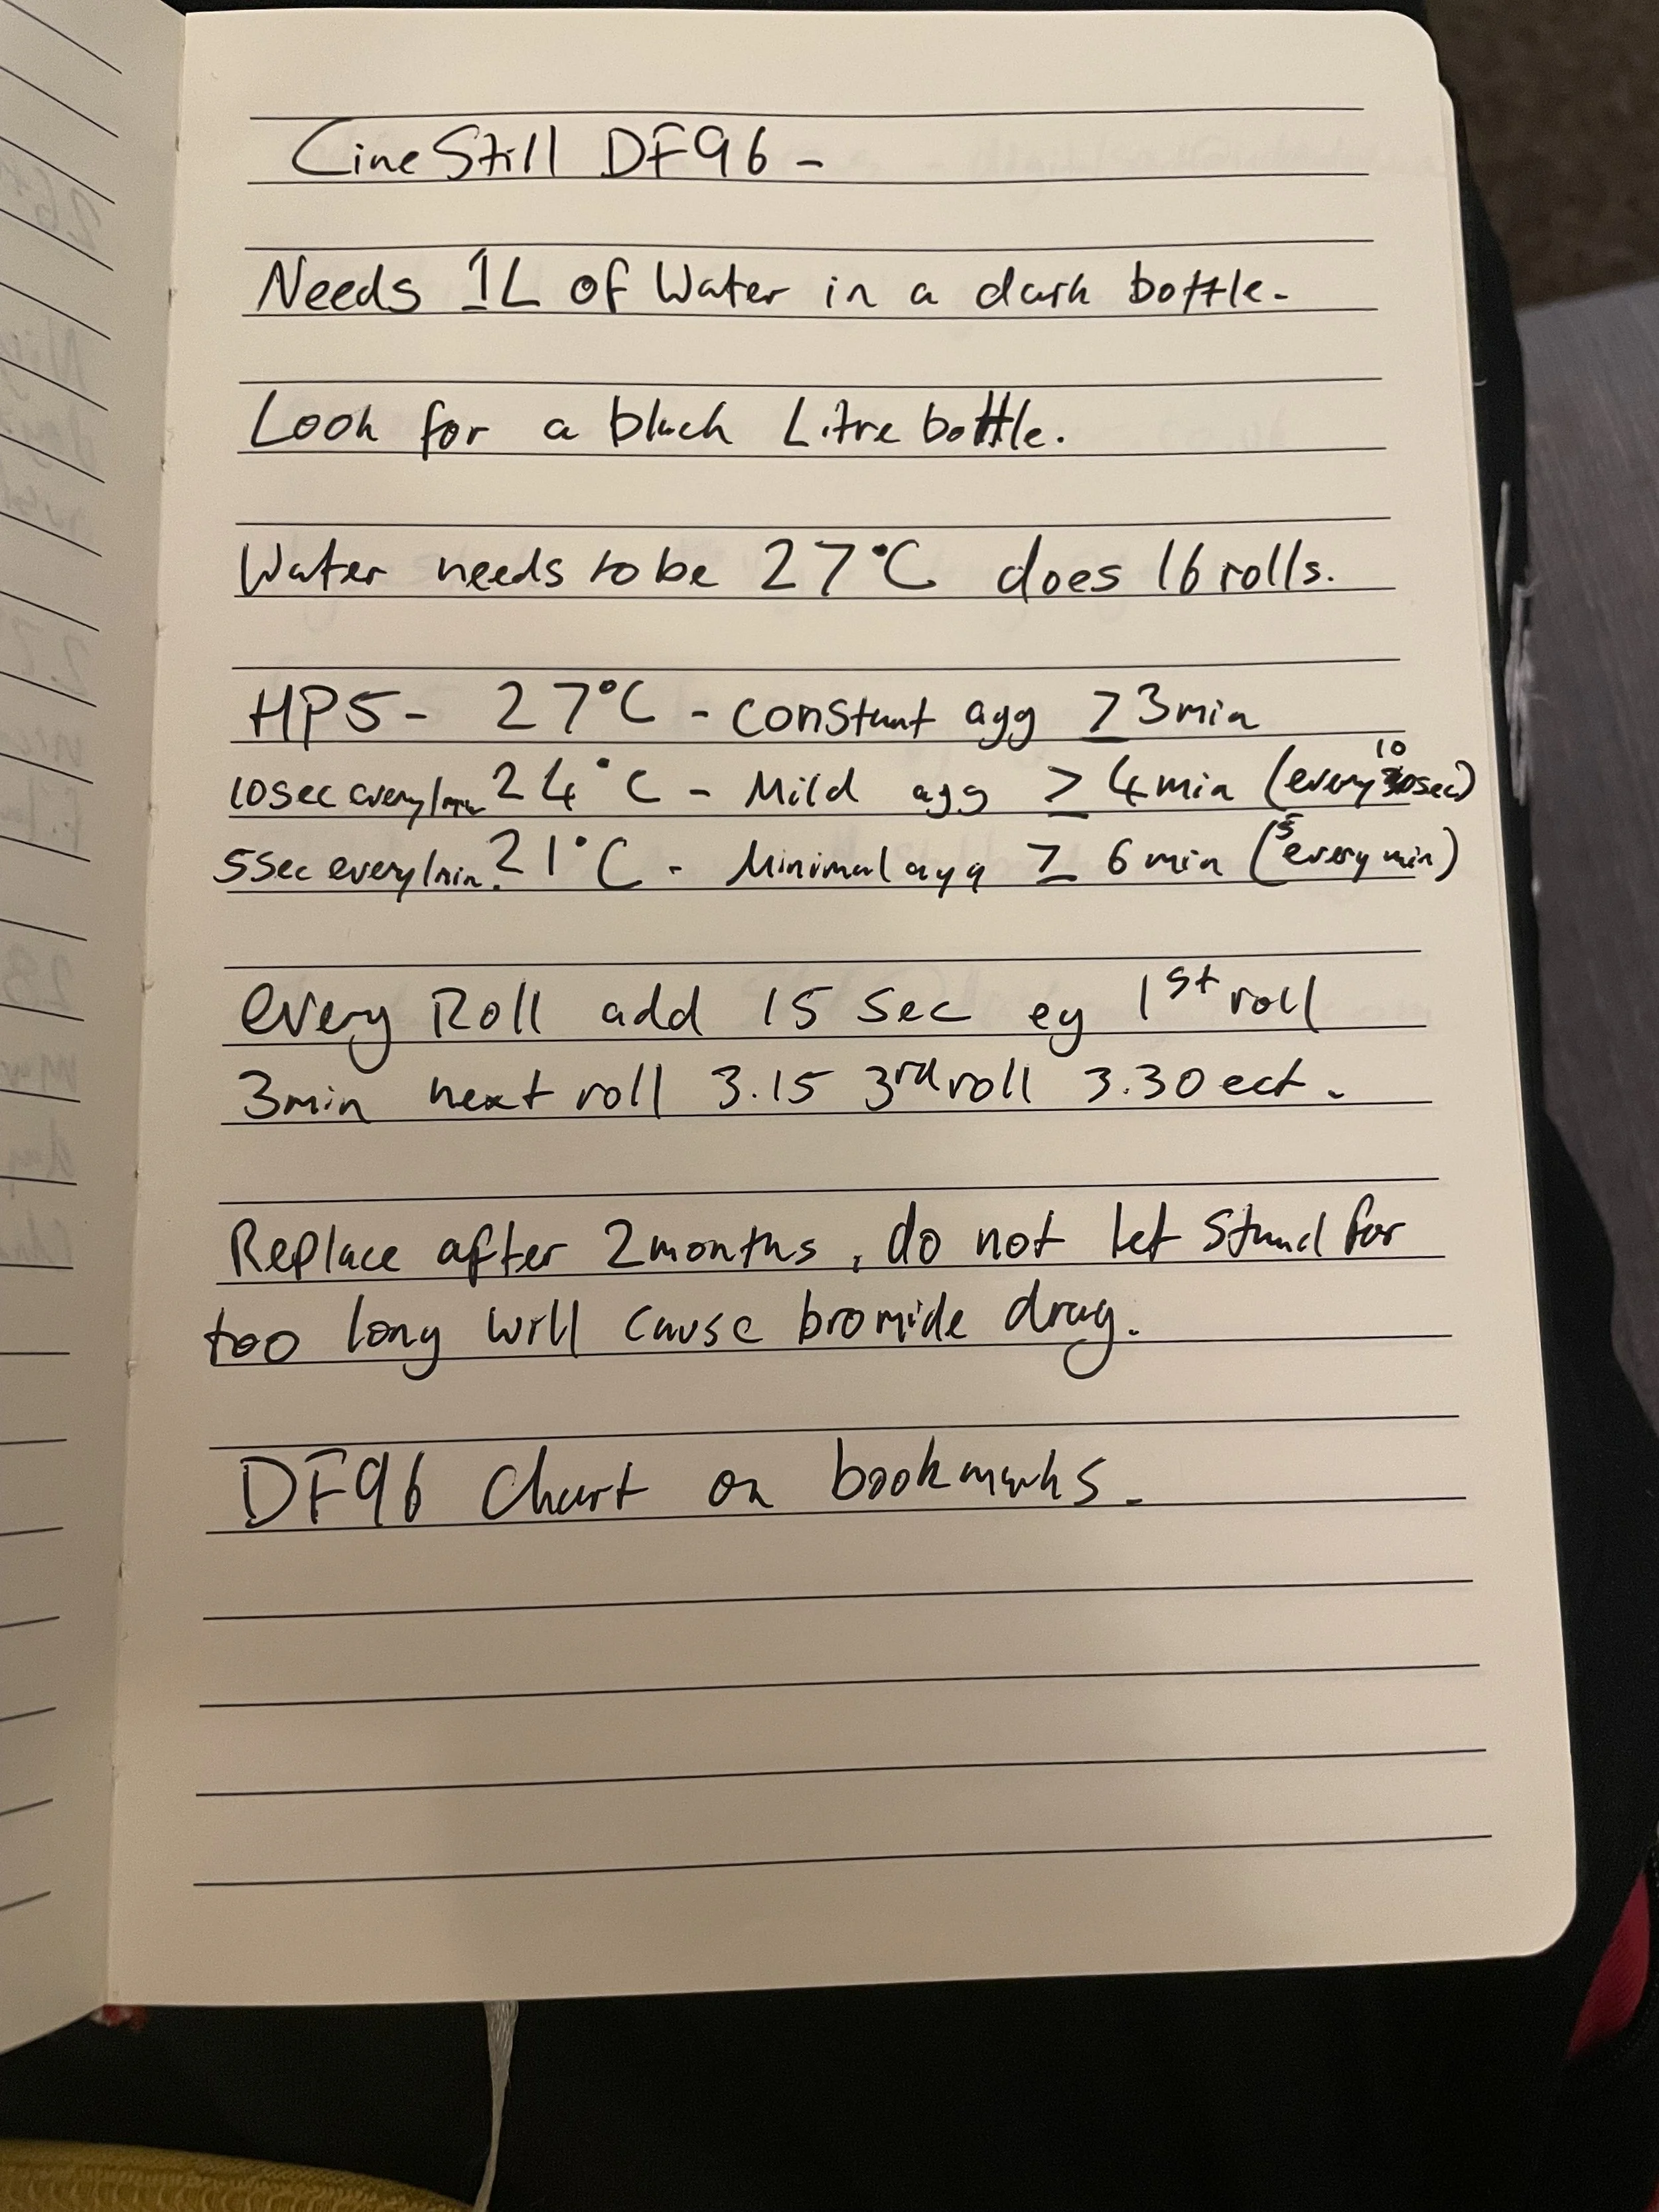 CineStill DF96 -
Needs 1L of Water in a dark bottle.
Look for a black Litre bottle.
Water needs to be 27°C does 16 rolls.
HP5 - 27°C - constant agg ≥ 3min
10sec every 1min 24°C - Mild agg ≥ 4min (every 10 sec)
5sec every 1min. 21°C - Minimal agg ≥ 6min (5 every min)
every Roll add 15 Sec eg 1st roll
3min next roll 3.15 3rd roll 3.30 ect.
Replace after 2months, do not let Stand for
too long will cause bromide drag.
DF96 Chart on bookmarks.